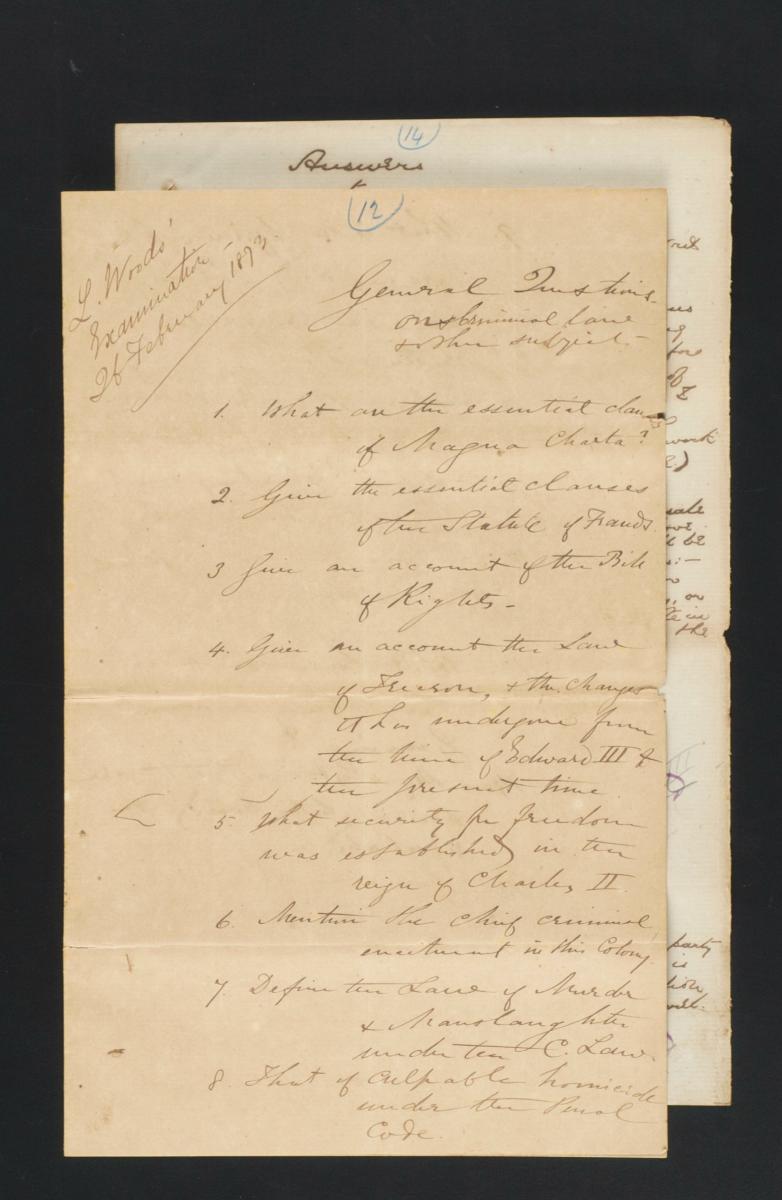 14
Answers
12
L. Woods'
Examination -
26 February 1873.
General Questions
on Criminal Law
& other subject. -
1. What are the essential clauses
of Magna Charta?
2. Give the essential clauses
of the Statute of Frauds.
3 Give an account of the Bill
of Rights -
4. Give an account the Law
of Treason, & the changes
it has undergone from
the time of Edward III to
the present time
5. What security for freedom
was established in the
reign of Charles II.
6. Mention the chief criminal
enactment in this Colony.
7. Define the Law of Murder
& Manslaughter
under the C. Law.
8. That of culpable homicide
under the Penal
Code.
out
work
be
or
the
party
is